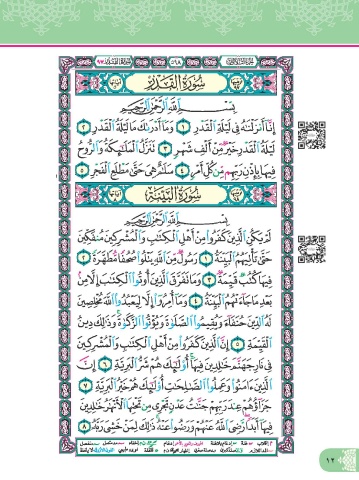 ٥٩٨
سورة القدر
بسم الله الرحمن الرحيم
إنا أنزلناه في ليلة القدر ١ وما أدراك ما ليلة القدر ٢
ليلة القدر خير من ألف شهر ٣ تنزل الملائكة والروح
فيها بإذن ربهم من كل أمر ٤ سلام هي حتى مطلع الفجر ٥
سورة البينة
بسم الله الرحمن الرحيم
لم يكن الذين كفروا من أهل الكتاب والمشركين منفكين
حتى تأتيهم البينة ١ رسول من الله يتلوا صحفا مطهرة ٢
فيها كتب قيمة ٣ وما تفرق الذين أوتوا الكتاب إلا من
بعد ما جاءتهم البينة ٤ وما أمروا إلا ليعبدوا الله مخلصين
له الدين حنفاء ويقيموا الصلاة ويؤتوا الزكاة وذلك دين
القيمة ٥ إن الذين كفروا من أهل الكتاب والمشركين
في نار جهنم خالدين فيها أولئك هم شر البرية ٦ إن
الذين آمنوا وعملوا الصالحات أولئك هم خير البرية ٧
جزاؤهم عند ربهم جنات عدن تجري من تحتها الأنهار خالدين
فيها أبدا رضي الله عنهم ورضوا عنه ذلك لمن خشي ربه ٨
١٢